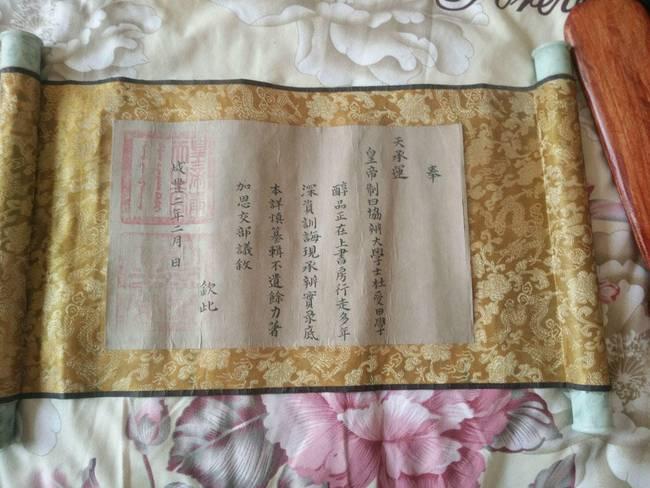 奉
天承運
皇帝制曰協辦大學士杜受田學
醇品正在上書房行走多年
深資訓誨現承辦實录底
本詳慎纂輯不遺餘力著
加恩交部議敘
欽此
咸豐二年二月日